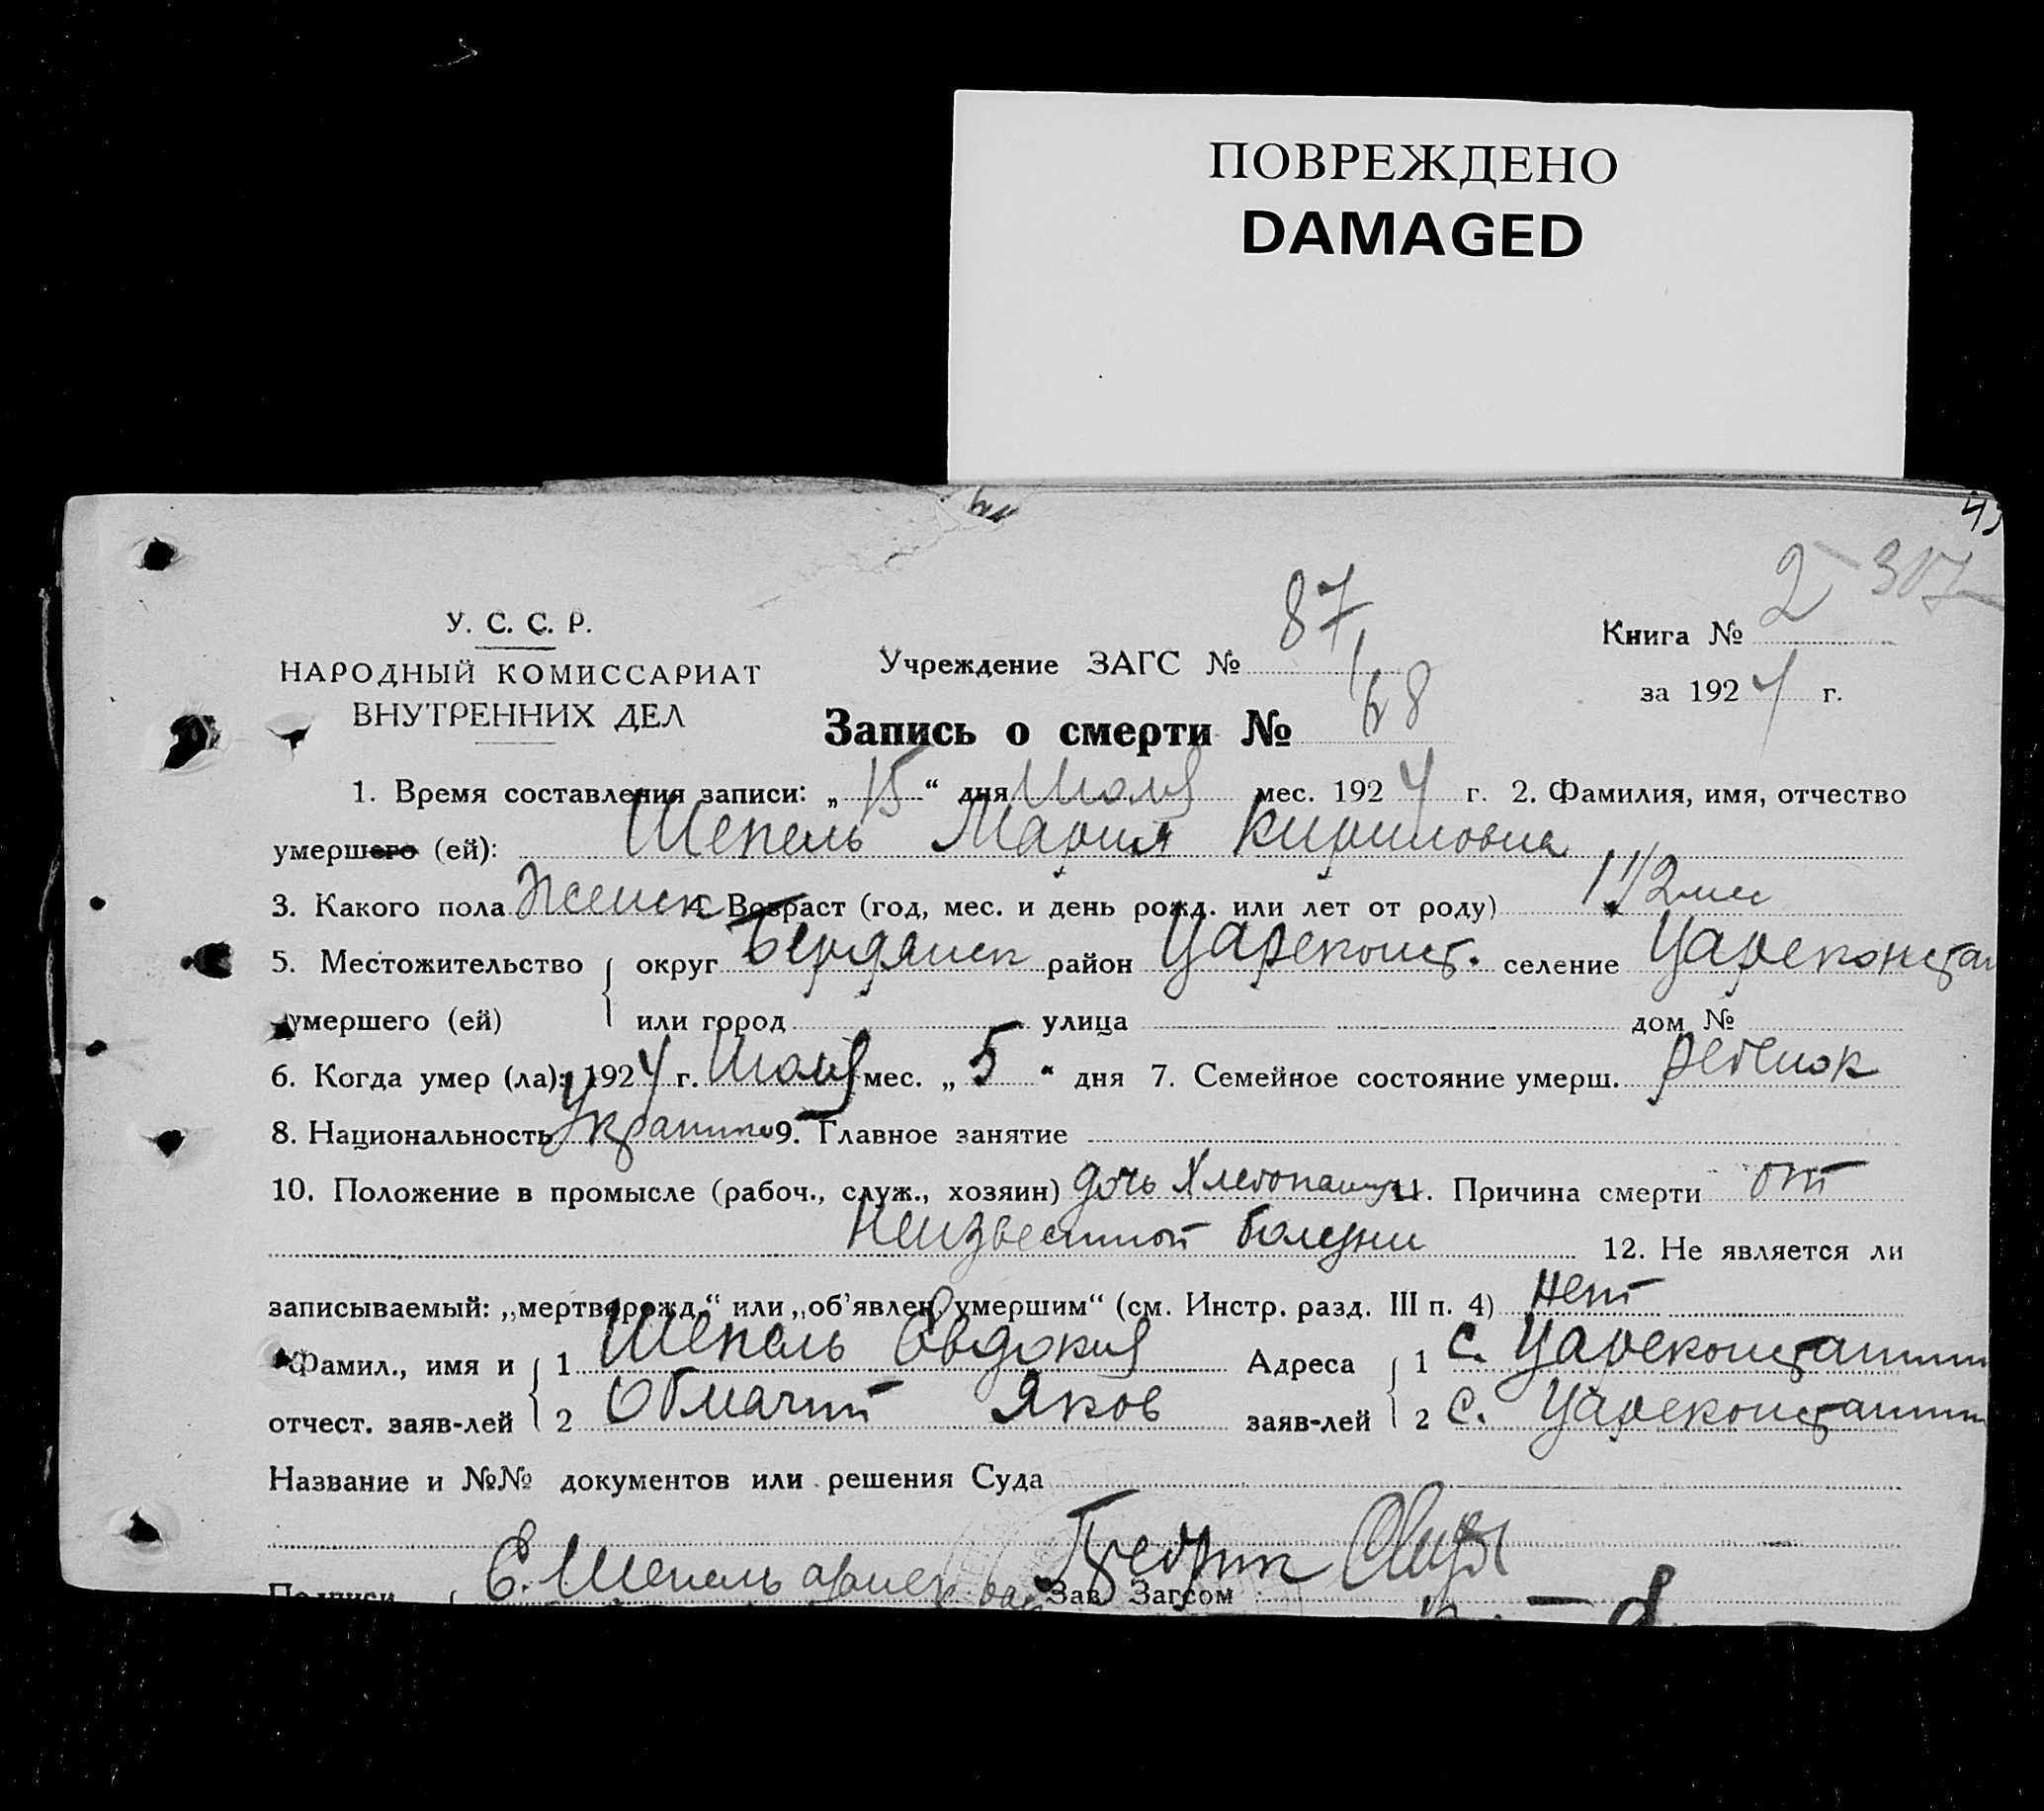 ПОВРЕЖДЕНО
DAMAGED
2 307
У. С. С. Р.
НАРОДНЫЙ КОМИССАРИАТ
ВНУТРЕННИХ ДЕЛ
Учреждение ЗАГС № 87
Книга № 2
за 1924 г.
Запись о смерти № 168
1. Время составления записи: „15“ дня Июля мес. 1924 г. 2. Фамилия, имя, отчество
умершего (ей): Шепель Мария Кириловна
3. Какого пола Женск 4. Возраст (год, мес. и день рожд. или лет от роду) 1 1/2 мес
5. Местожительство округ Бердянск район Цареконст. селение Цареконстан
умершего (ей) или город улица дом №
6. Когда умер (ла): 1924 г. Июля мес. „5“ дня 7. Семейное состояние умерш. ребенок
8. Национальность Украин 9. Главное занятие
10. Положение в промысле (рабоч., служ., хозяин) дочь Хлебопашца 11. Причина смерти от
неизвестной болезни 12. Не является ли
записываемый: „мертворожд.“ или „об’явлен. умершим“ (см. Инстр. разд. III п. 4) нет
Фамил., имя и 1 Шепель Овдокия Адреса 1 с. Цареконстантин
отчест. заяв-лей 2 Яков заяв-лей 2 с. Цареконстантин
Название и №№ документов или решения Суда
Подписи Е. Шепель Зав. Загсом